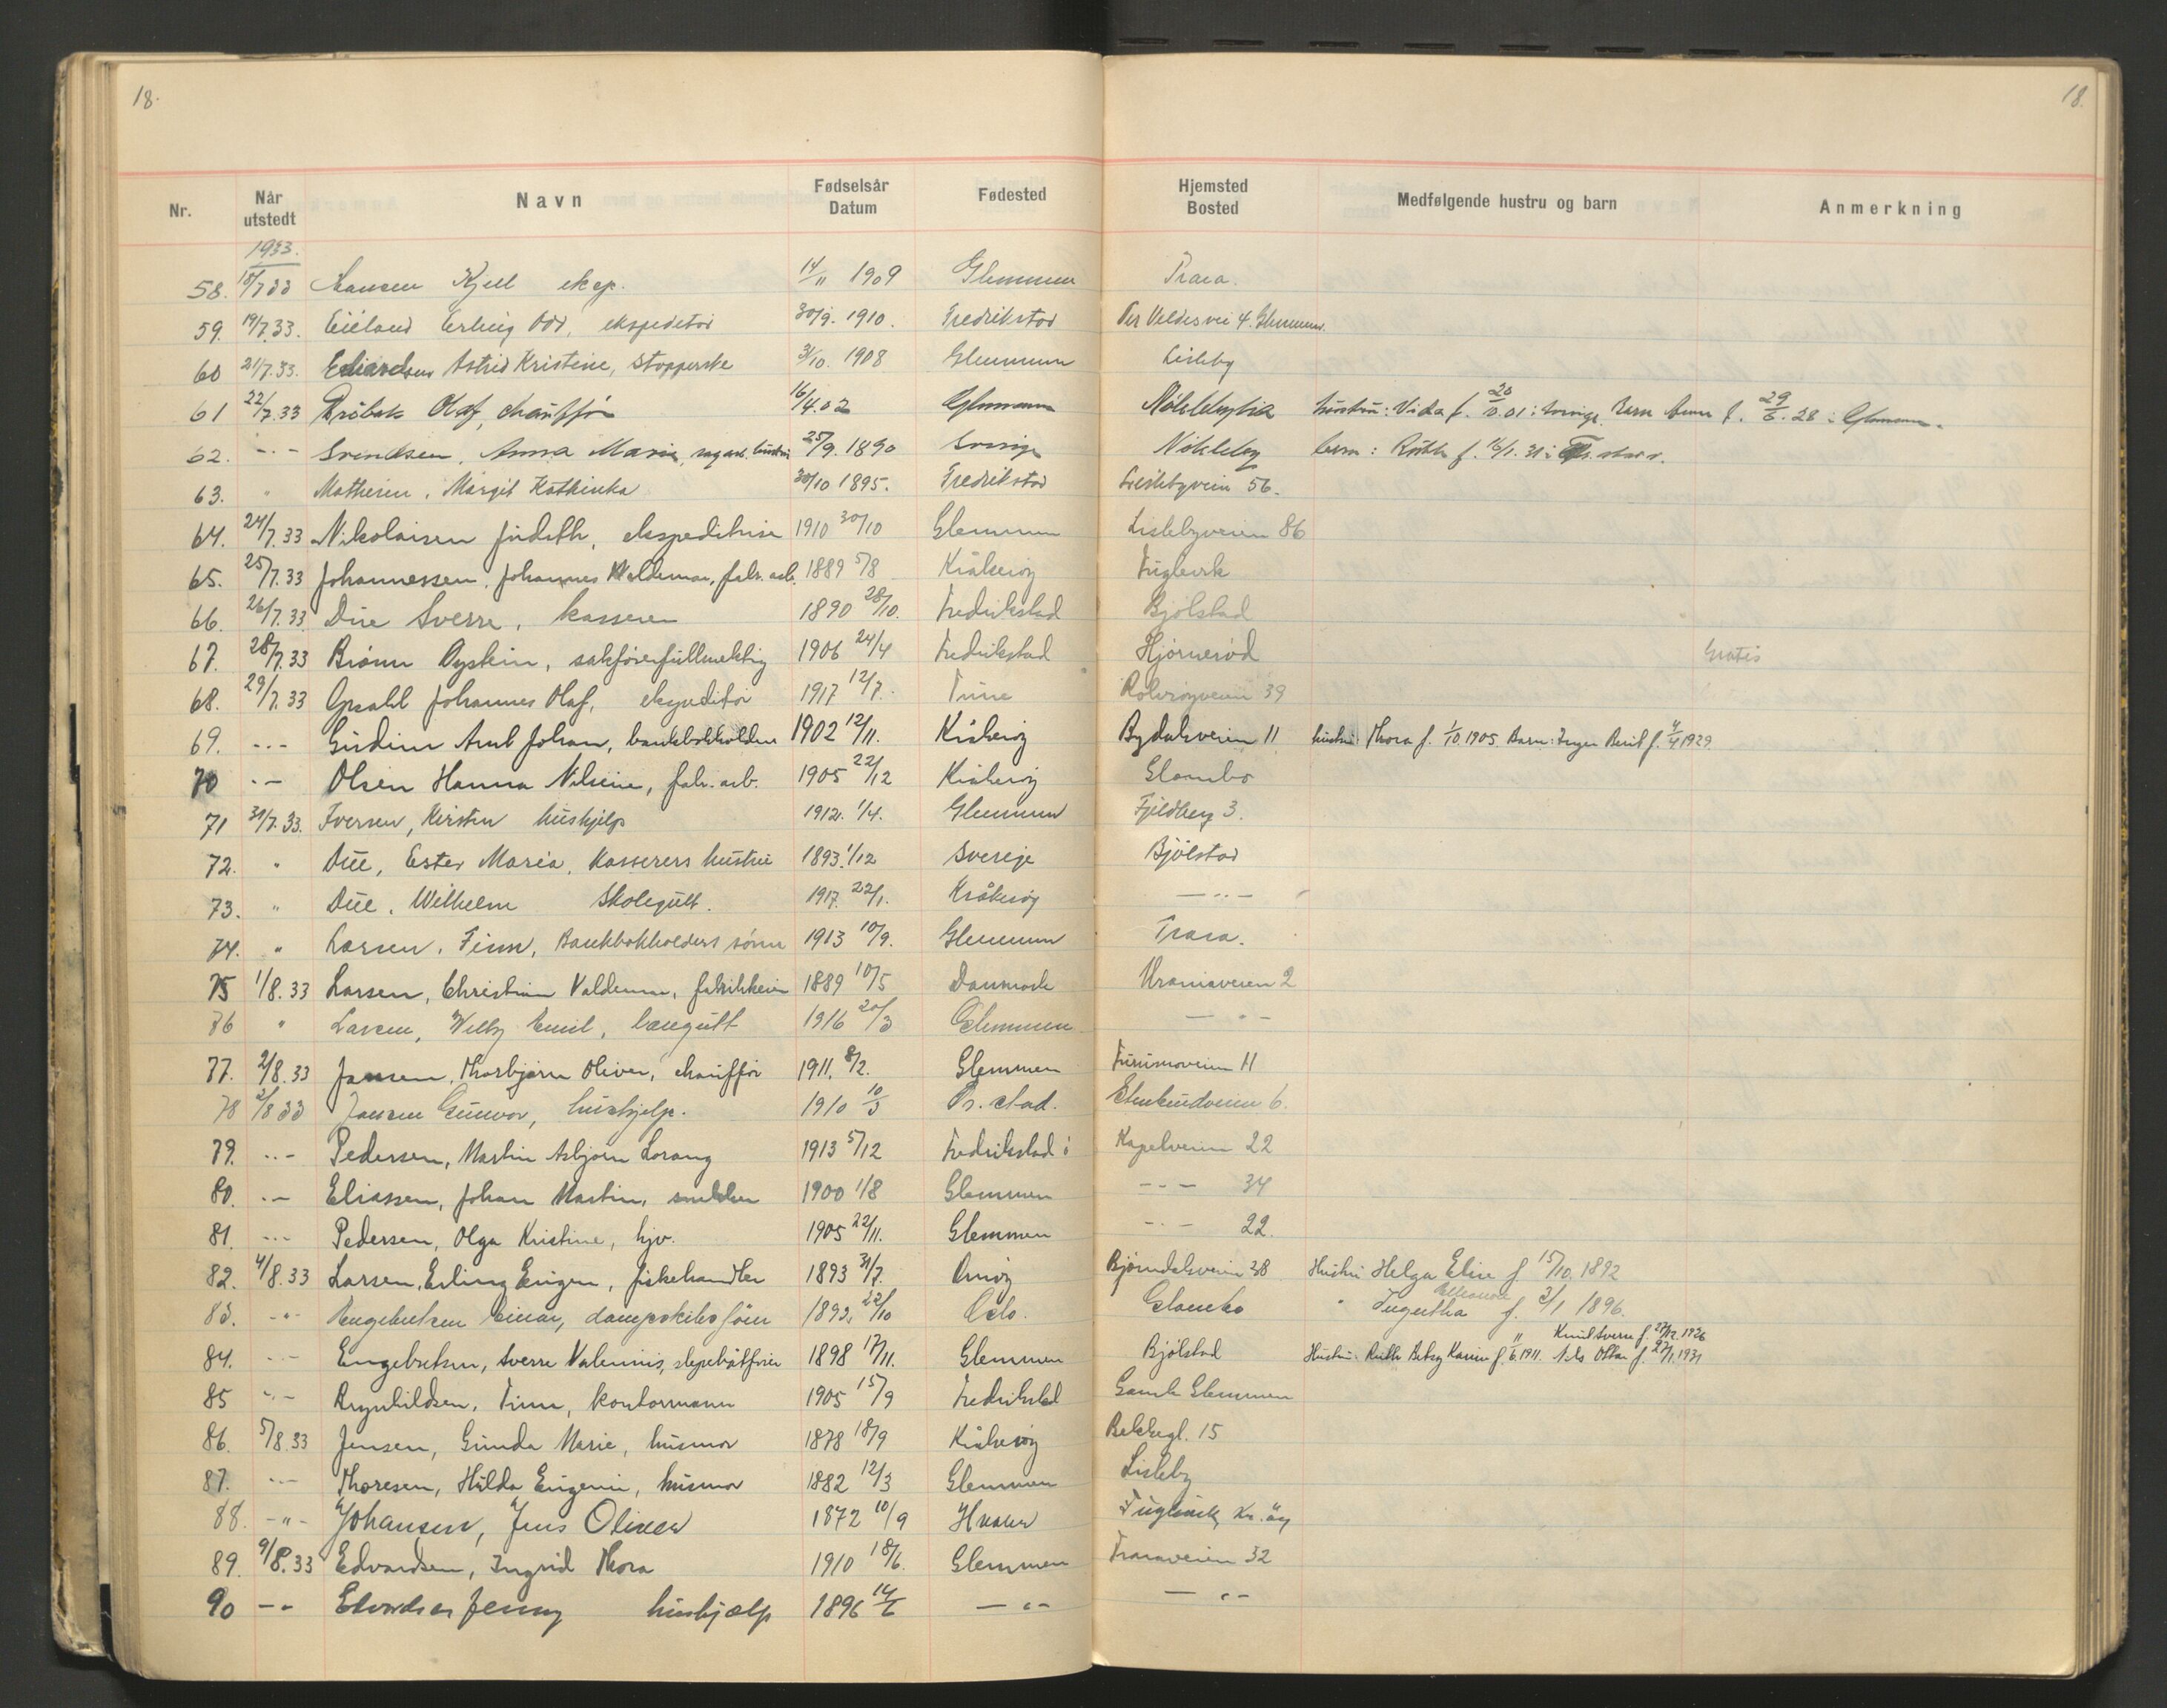 18. 18.
Nr. Når utstedt Navn Fødselsår Datum Fødested Hjemsted Bosted Medfølgende hustru og barn Anmerkning
1933.
58. 18/7 33 Hansen Kjell eksp. 14/11 1909 Glemmen Trara.
59. 19/7.33. Erling Odd, ekspeditør 30/9. 1910. Fredrikstad Per Veldes vei 4. Glemmen.
60 21/7.33. Astrid Kristine, stopperske 3/10. 1908 Glemmen Lisleby
61 22/7.33 Olaf, chauffør 16/4.02 Glemmen Nøkleby hustru: Vida f. 20/10.01: Sverige. Barn f. 29/6.28 i Glemmen.
62. -"- Svendsen, Anna Marie, hustru 25/9.1890 Sverige Nøkleby barn: Ruth f. 16/1.31 i Fr.stad.
63. " Mathisen, Margit Kathinka 30/10 1895. Fredrikstad Lislebyveien 56.
64. 24/7.33 Nikolaisen Judith, ekspeditrise 1910 30/10 Glemmen Lislebyveien 86
65. 25/7.33 Johannessen, Johannes Waldemar, fabr. arb. 1889 5/8 Kråkerøy Fuglevik
66. 26/7.33 Due Sverre, kasserer 1890 28/10. Fredrikstad Bjølstad
67. 28/7.33 Brønn Øystein, sakførerfullmektig 1906 24/4 Fredrikstad Hjørnerød Gratis
68. 29/7.33 Opsahl Johannes Olaf, ekspeditør 1917 12/7. Tune Rolvsøyveien 39
69. -"- Johan, bankbokholder 1902 12/11. Kråkerøy Bydalsveien 11 hustru: Thora f. 1/10.1905. Barn: Inger Berit f. 4/4 1929
70 -"- Olsen Hanna Nilsine, fabr. arb. 1905 22/12 Kråkerøy Glombo
71 31/7.33. Iversen, Kirsten hushjelp 1912. 1/4. Glemmen Fjeldberg 3.
72. " Due, Ester Maria, Kasserers hustru 1893. 1/12 Sverige Bjølstad
73. " Due, Wilhelm Skolegutt. 1917. 22/1. Kråkerøy -"-
74. " Larsen, Finn, Bankbokholders sønn 1913 10/9. Glemmen Trara.
75 1/8.33 Larsen, Christian Valdemar, fabrikkeier 1889 10/5 Danmark Uraniaveien 2
76 " Larsen, Willy Emil, læregutt 1916 20/3 Glemmen -"-
77. 2/8.33 Jansen, Thorbjørn Oliver, chauffør 1911. 8/2. Glemmen Furumoveien 11
78 2/8 33 Jansen Gunvor, hushjelp. 1910 10/3 Fr. stad. 6.
79. -"- Pedersen, Martin Asbjørn Lorang 1913 5/12 Fredrikstad Kapelveien 22
80. -"- Eliassen, Johan Martin, snekker 1900 1/8 Glemmen -"- 34
81. -"- Pedersen, Olga Kristine, hjv. 1905 22/11. Glemmen -"- 22.
82. 4/8.33 Larsen, Erling Eugen, fiskehandler 1893 31/7. Onsøy Bjørndalsveien 38 Hustru Helga Elise f 15/10. 1892
83. -"- Engebretsen Einar, dampskibsfører 1893. 22/10 Oslo. Glombo " Eleonore Ingertha f. 3/1 1896.
84. -"- Engebretsen, Sverre Valennius, slepebåtfører 1898 17/11. Glemmen Bjølstad Hustru Ruth Betsy Karin f. 11/6.1911. Knut Sverre f. 27/12.1926 Nils Ottar f. 27/1.1931
85 -"- Reynhildsen, Finn, kontormann 1905 15/9 Fredrikstad Gamle Glemmen
86. 5/8.33 Jensen, Gunda Marie, husmor 1878 18/9 Kråkerøy Bekkegt. 15
87. -"- Thoresen, Hilda Eugenie, husmor 1882 12/3 Glemmen Lisleby
88. -"- Johansen, Jens Oliver 1872 10/9 Hvaler Fuglevik, Kr.øy
89. 9/8.33 Edvardsen, Ingrid Thora 1910 18/6. Glemmen Traraveien 32
90 -"- Edvardsen Jenny hushjælp 1896 14/6 -"- -"-